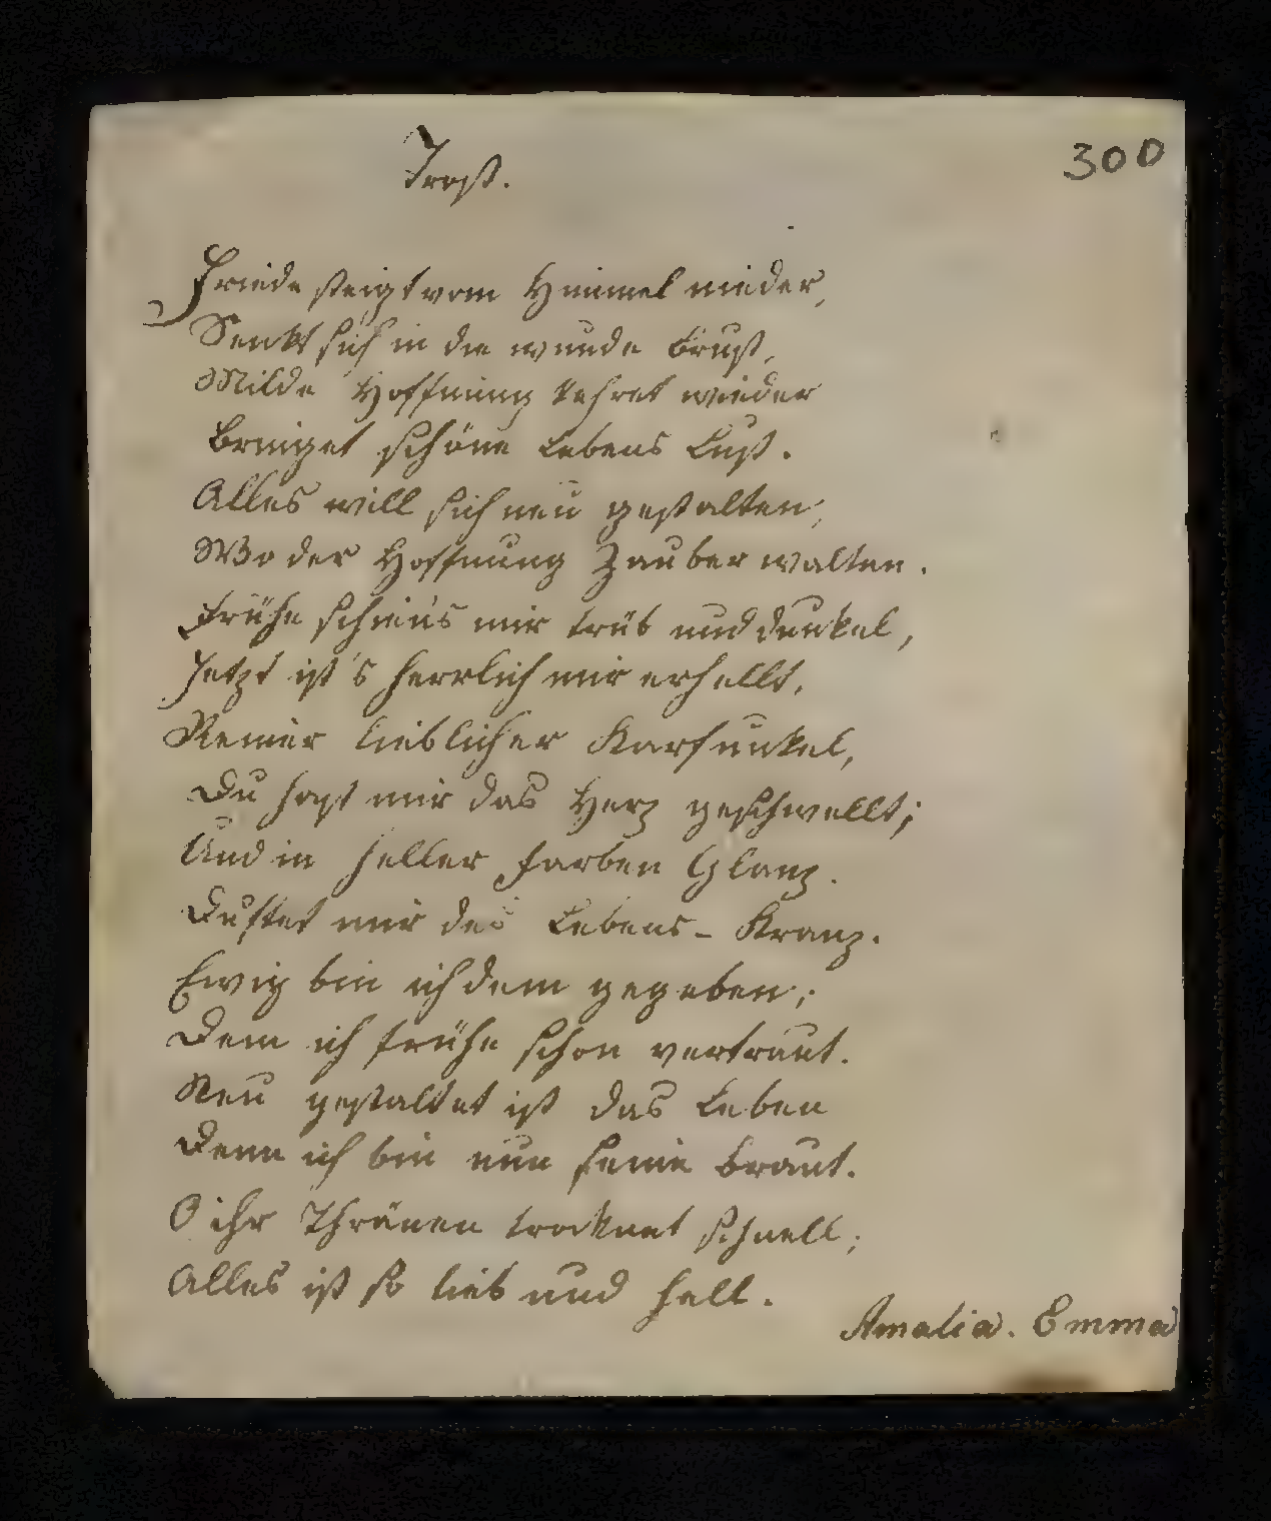 Trost.
300
Friede steigt vom Himmel nieder,
Senkt sich in die wunde Brust,
Milde Hoffnung kehret wieder
Bringet schöne Lebens Lust.
Alles will sich neu gestalten,
Wo der Hoffnung Zauber walten.
Frühe schien's mir trüb und dunkel,
Jetzt ist's herrlich mir erhellt,
Reiner lieblicher Karfunkel,
Du hast mir das Herz geschwellt;
Und in heller Farben Glanz.
Duftet mir des Lebens-Kranz.
Ewig bin ich dem gegeben;
Dem ich frühe schon vertraut.
Neu gestaltet ist das Leben
Denn ich bin nun seine Braut.
O ihr Thränen trocknet schnell;
Alles ist so lieb und hell.
Amalia. Emma